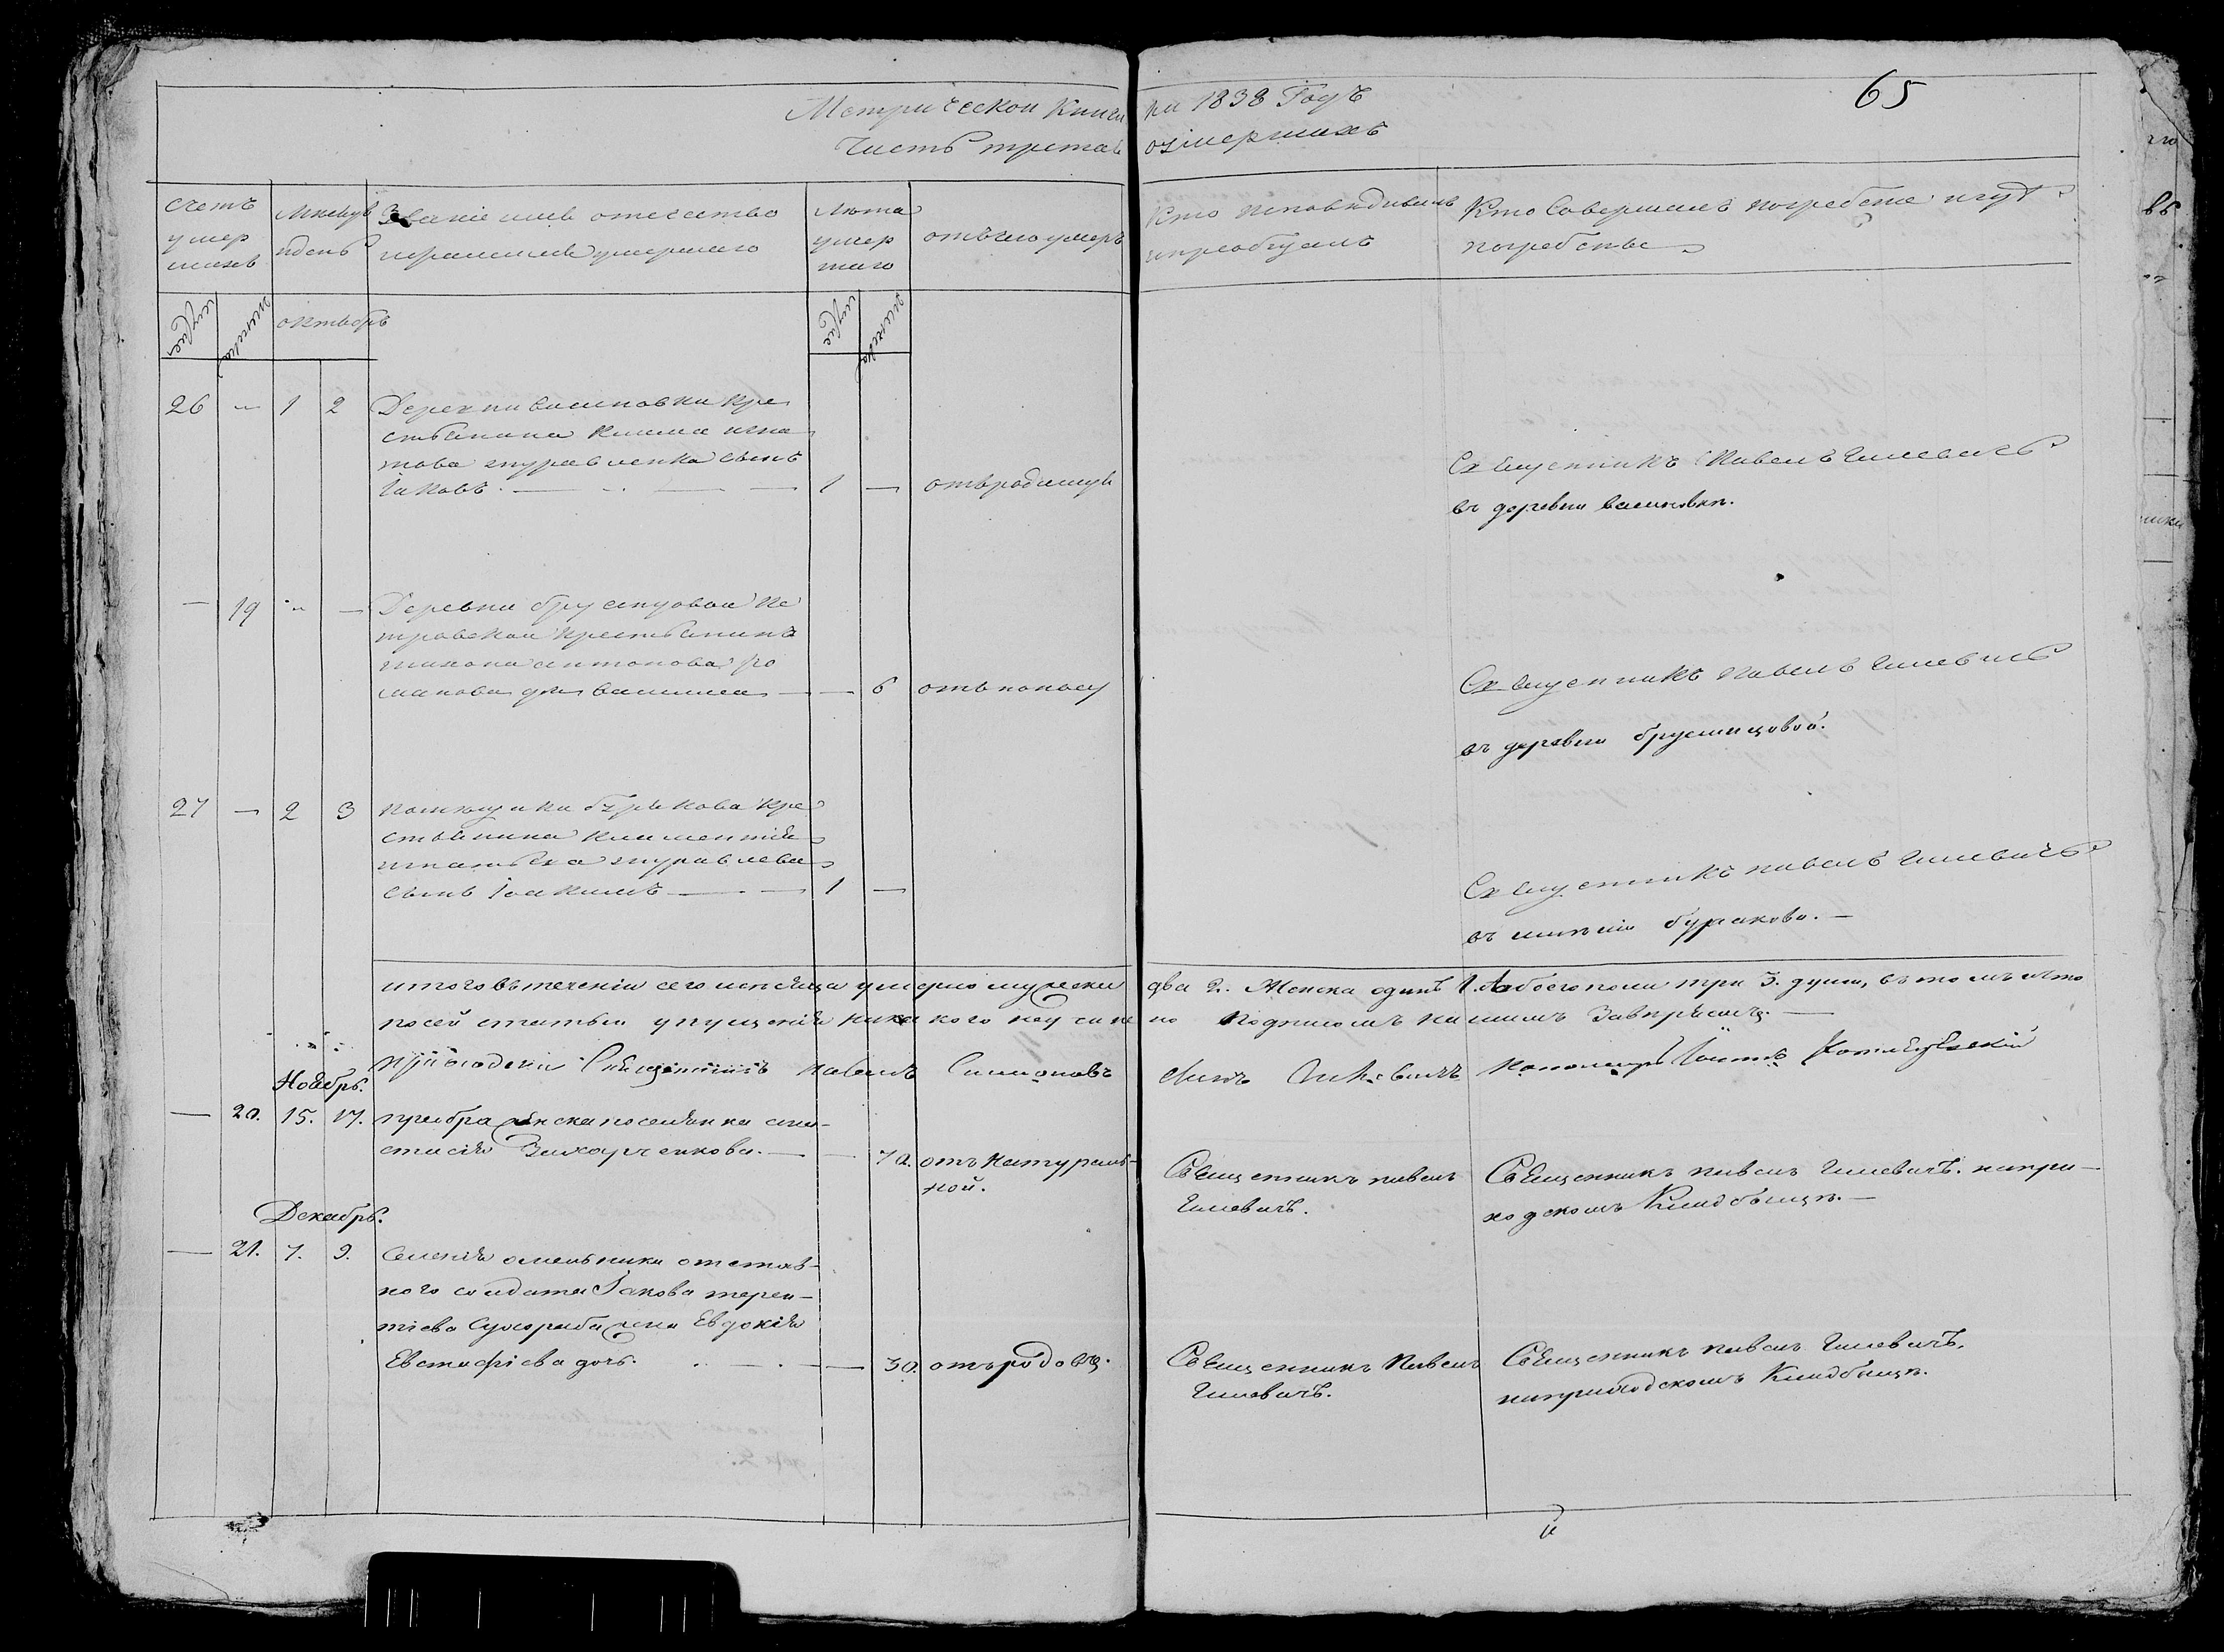 Метрической Книги на 1838 Годъ
65
Часть третая о умершихъ
Счетъ умер шихъ
Мѣсецъ и день
Званіе имя отечество
и фамилия умершаго
Лѣта умер шаго
отъ чего умеръ
Кто исповѣдывалъ
и преобщалъ
Кто Совершалъ погребение и гдѣ
погребены
октябрь
26 — 1 2 Деревни васиновки кре
стьянина клима игна
това журавленка сынъ
Іаковъ 1 — отъ родимцу
Священникъ Павелъ Гилевичъ
въ деревни васиновки.
— 19 — Деревни брусницовой пе
тровской крестьянинъ
тихона антонова ро
манова дочь — 6 отъ поносу
Священникъ павелъ Гилевичъ
въ деревни брусницовой.
27 — 2 3 помещика буракова кре
стьянина климентия
игнатьева журавлева
сынъ Іоакимъ 1 —
Священникъ павелъ Гилевичъ
въ имѣніи буракова.
итого въ теченіи сего мѣсяца умерло мужеска два 2. Женска одинъ 1. А обоего пола три 3. души, въ томъ что
по сей статьи упущенія никакого неучинено подписомъ нашимъ Завѣряемъ.
Приходскій Священникъ павелъ Симоновъ сынъ Пономарь
Ноябрь.
— 20. 15. 17. преображенска поселянка ана-
стасія Захарченкова. — 70. отъ натураль-
ной.
Священникъ павелъ
Гилевичъ.
Священникъ павелъ Гилевичъ. на при-
ходскомъ Кладбищѣ.
Декабрь.
— 21. 7. 9. Селенія омельника отстав-
ного солдата Іакова терен-
тіева жена Евдокія
Евстафіева дочь. — 30. отъ родовъ.
Священникъ Павелъ
Гилевичъ.
Священникъ павелъ Гилевичъ.
на приходскомъ Кладбищѣ.